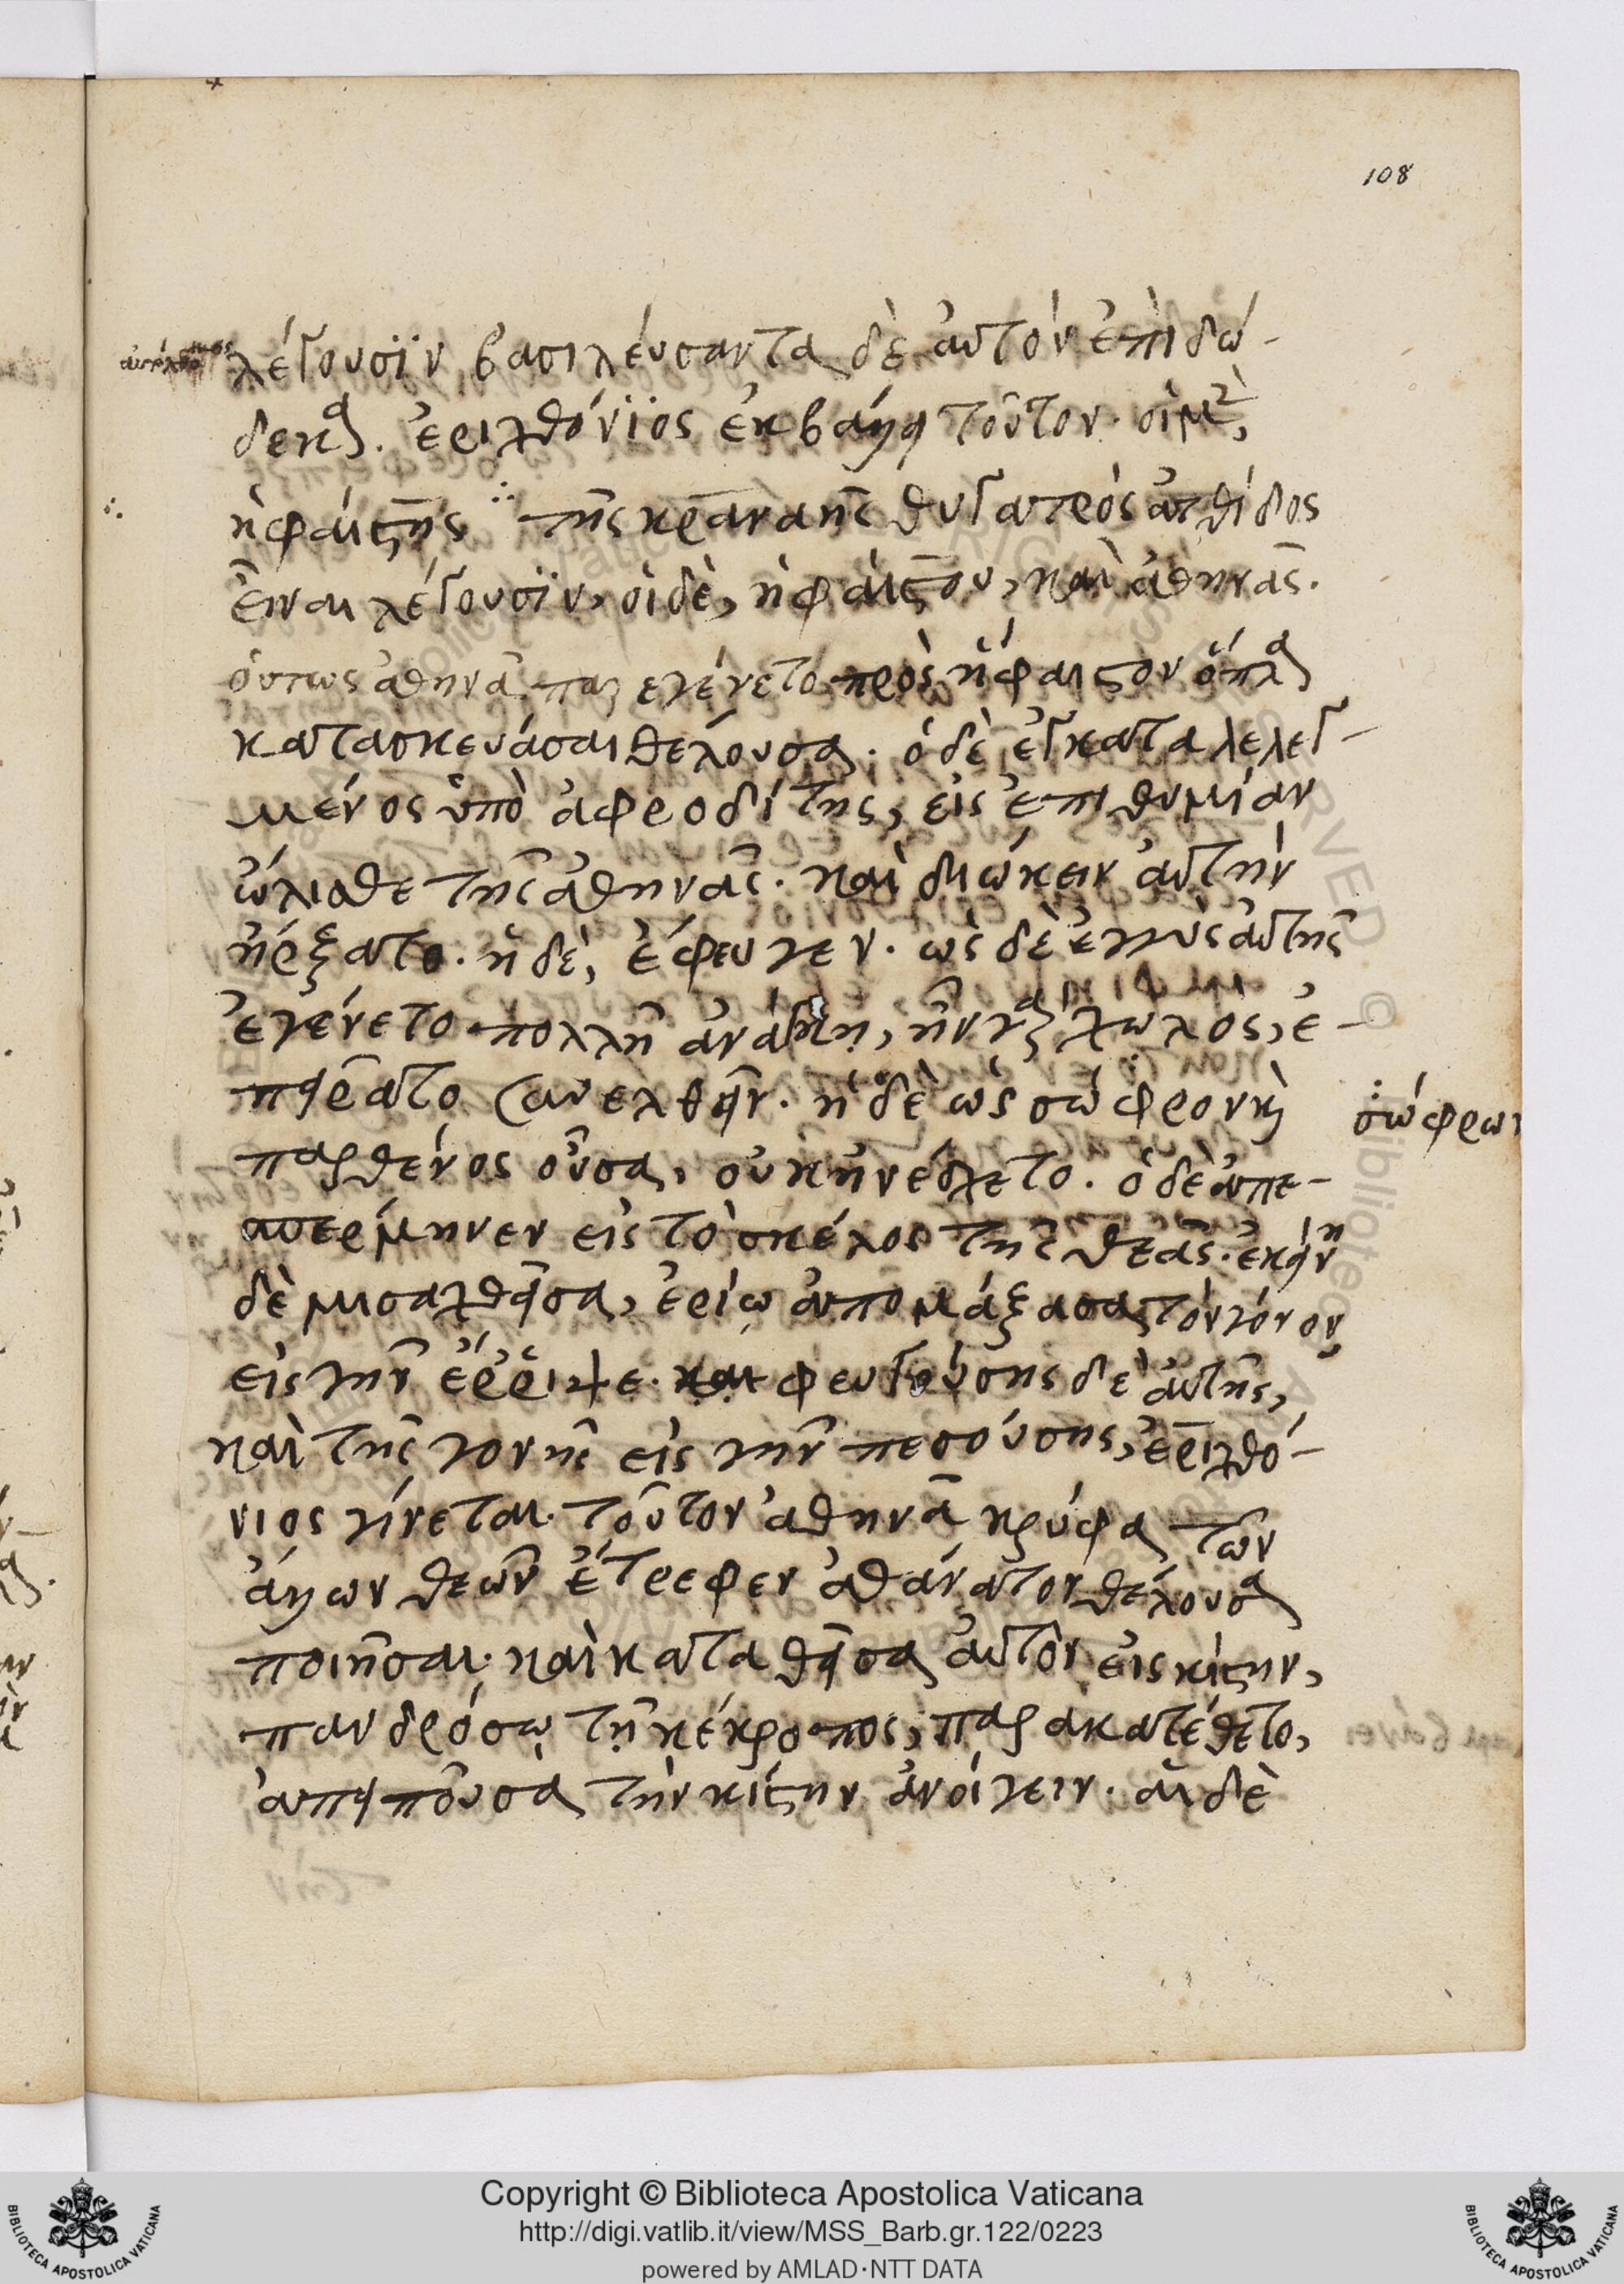 108
λέγουσϊν βασιλεύσαντα δὲ αὐτὸν ἐπὶ δώ-
δεκα. ἐριχθόνϊος ἐκβάλλει τοῦτον. οἱ μὲν,
ἡφαίστης ∴ τῆς κραναῆς θυγατρὸς ατθίδος
εἶναι λέγουσϊν, οἱ δὲ, ἡφαίστου, καὶ ἀθηνᾶς.
οὕτως ἀθηνᾶ παρεγένετο πρὸς ἥφαιστον ὅπλα
κατασκευάσαι θέλουσα. ὁ δὲ ἐγκαταλελεγ-
μένος ὑπὸ ἀφροδίτης, εἰς ἐπιθυμίαν
ὤλισθε τῆς ἀθηνᾶς. καὶ διώκειν αὐτὴν
ἤρξατο. ἡ δὲ, ἔφευγεν. ὡς δὲ ἐγγὺς αὐτῆς
ἐγένετο πολλῇ ἀνάγκῃ, ἦν γὰρ χωλὸς, ἐ-
πειρᾶτο συνελθεῖν. ἡ δὲ ὡς σώφρον καὶ
σώφρων
παρθένος οὖσα, οὐκ ἠνέσχετο. ὁ δὲ ἀπε-
σπερμηνεν εἰς τὸ σκέλος τῆς θεᾶς. ἐκείνη
δὲ μυσαχθεῖσα, ἐρίῳ ἀπομάξασα τὸν γόνον
εἰς γῆν ἔρριψε. φευγούσης δὲ αὐτῆς,
καὶ τῆς γονῆς εἰς γῆν πεσούσης, ἐριχθό-
νιος γίνεται. τοῦτον ἀθηνᾶ κρύφα τῶν
ἄλλων θεῶν ἔτρεφεν ἀθάνατον θέλουσα
ποιῆσαι. καὶ καταθεῖσα αὐτὸν εἰς κίστην,
πανδρόσῳ τῇ κέκροπος, παρακατέθετο,
ἀπειποῦσα τὴν κίστην ἀνοίγειν. αἱ δὲ
Copyright © Biblioteca Apostolica Vaticana
http://digi.vatlib.it/view/MSS_Barb.gr.122/0223
powered by AMLAD·NTT DATA